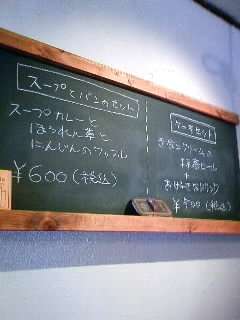 スープとパンのセット
スープカレーと
ほうれん草と
にんじんのワッフル
¥600(税込)
ケーキセット
生クリームの
抹茶ロール
+
お好きなドリンク
¥700(税込)